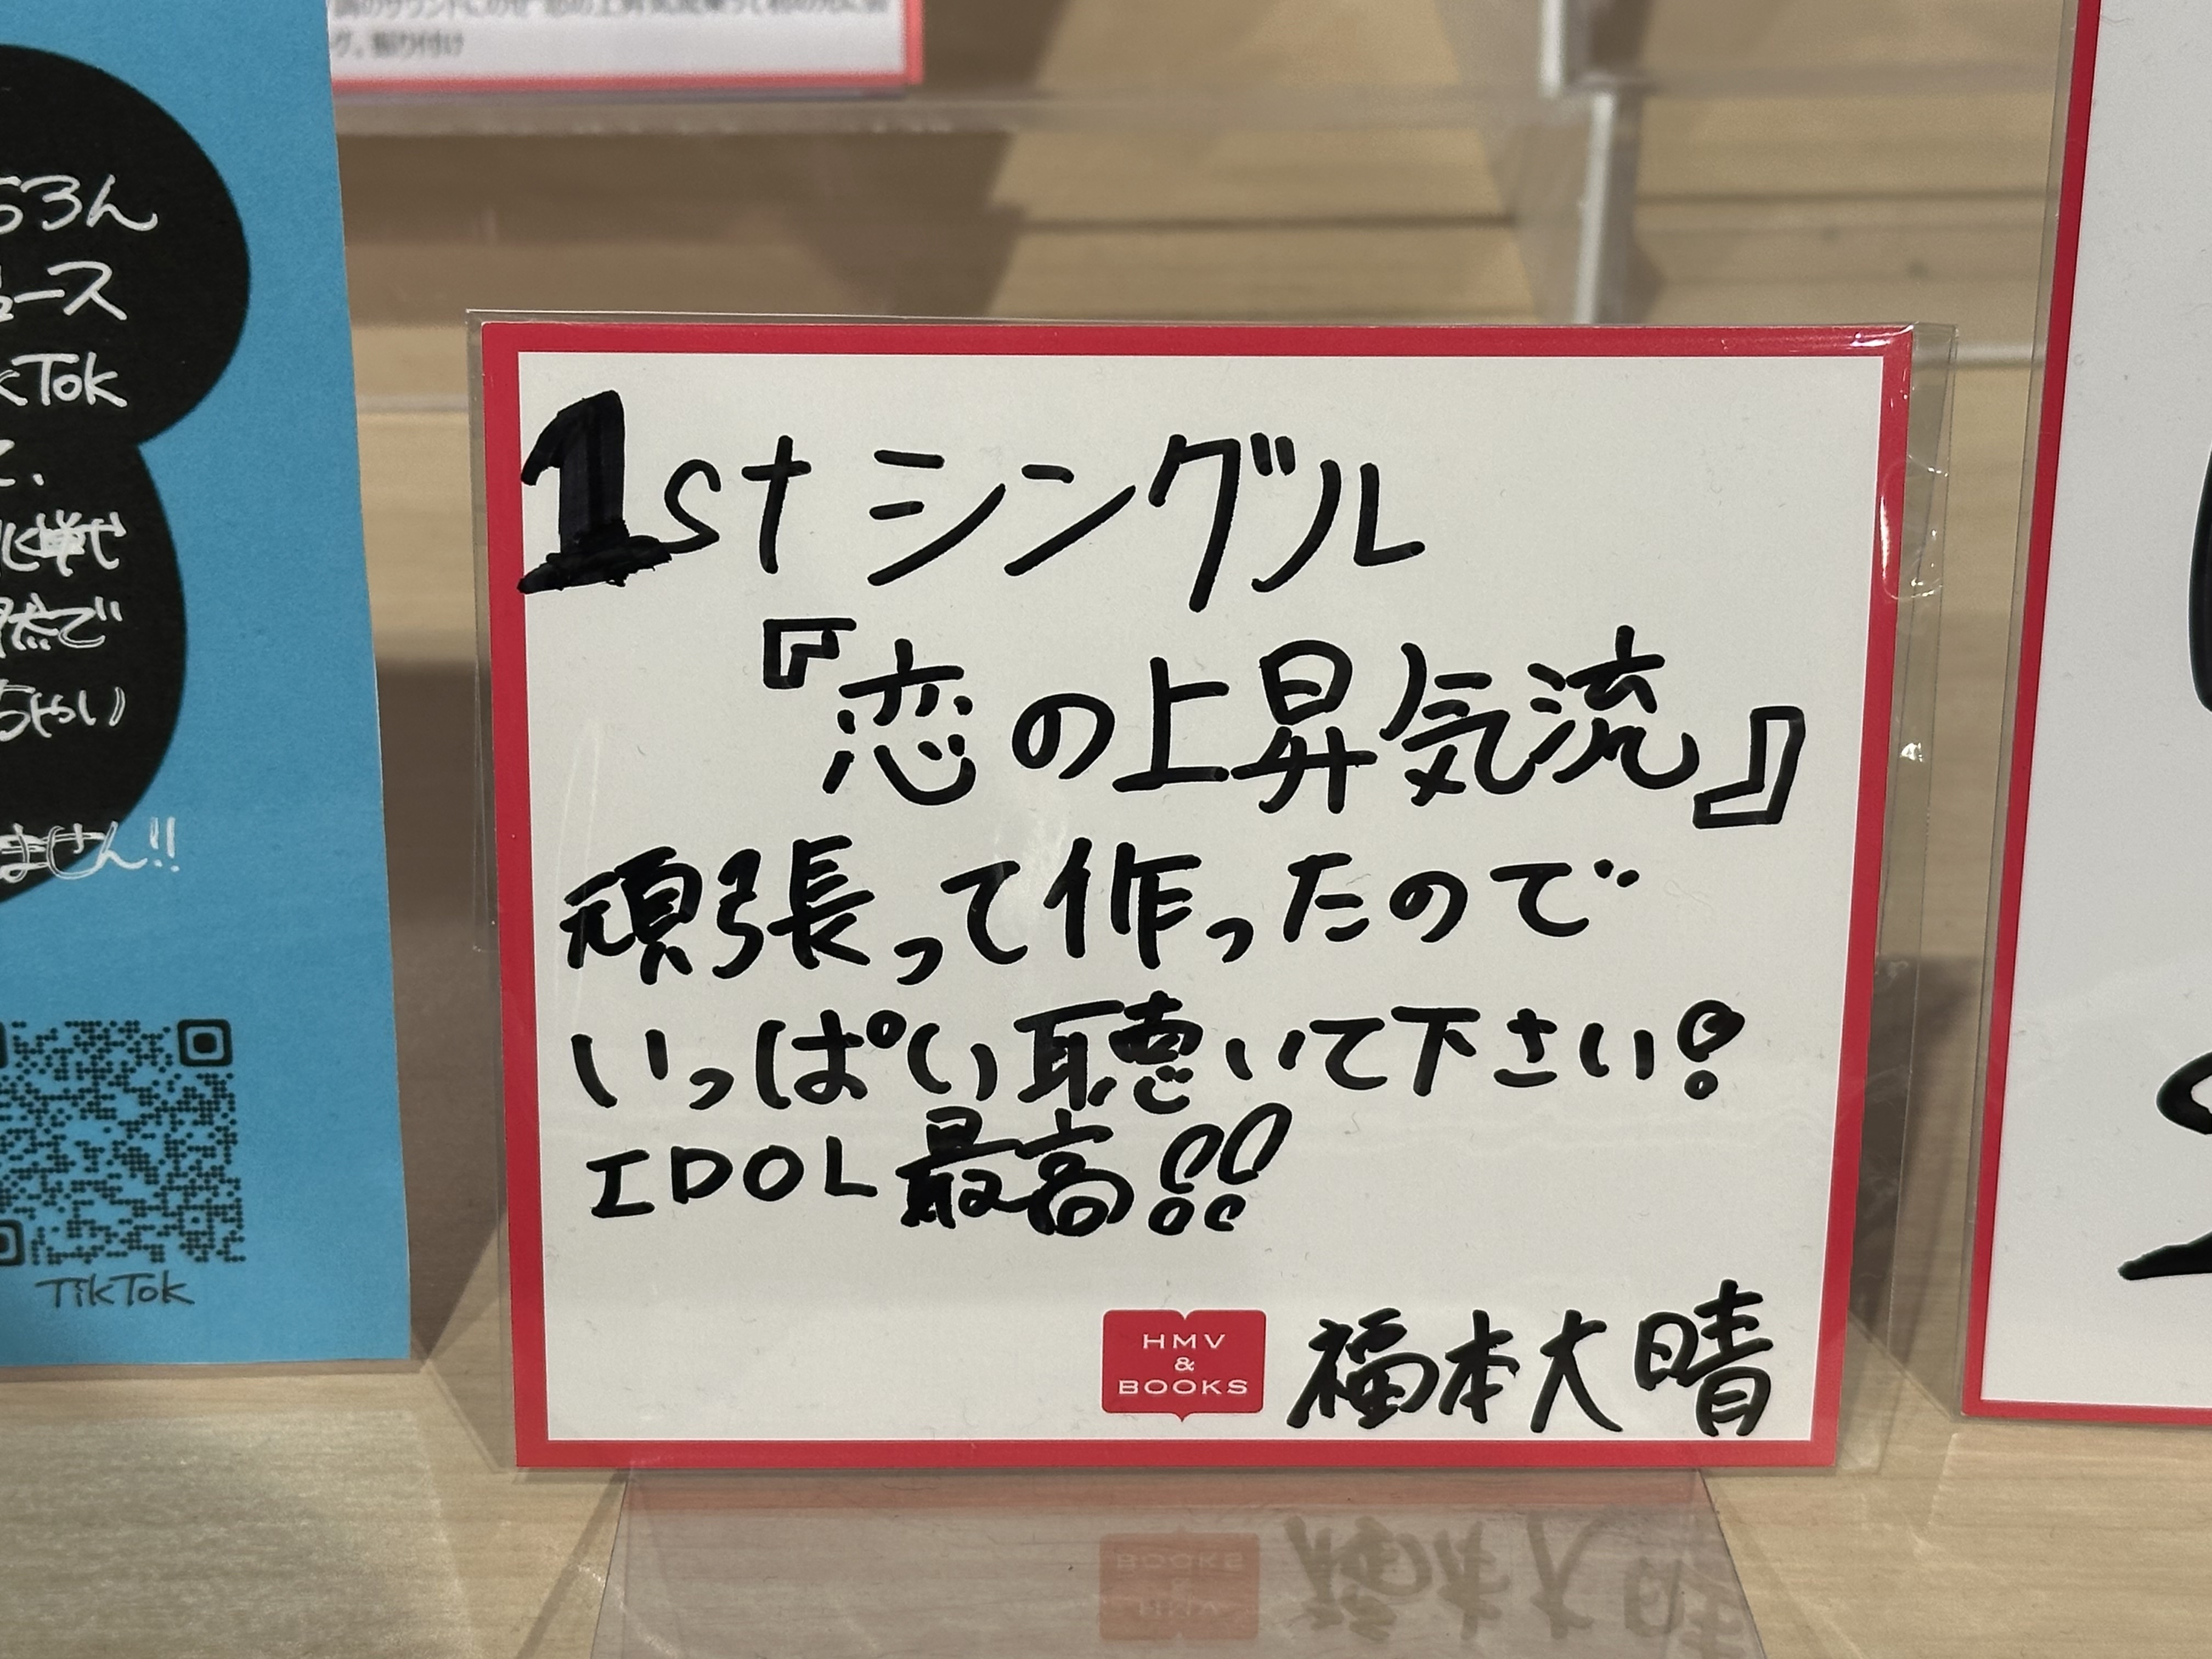 グ。振り付け
ース
kTok
て、
で
ちゃい
ません!!
TikTok
1st シングル
『恋の上昇気流』
頑張って作ったので
いっぱい聴いて下さい!
IDOL最高!!
HMV
&
BOOKS
福本大晴